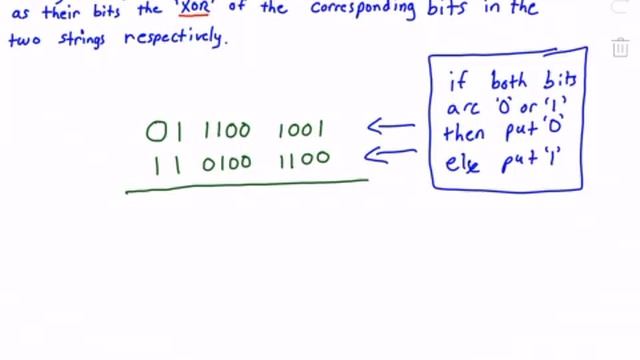 as their bits the 'XOR' of the corresponding bits in the
two strings respectively.
if both bits
are '0' or '1'
then put '0'
else put '1'
01 1100 1001
11 0100 1100